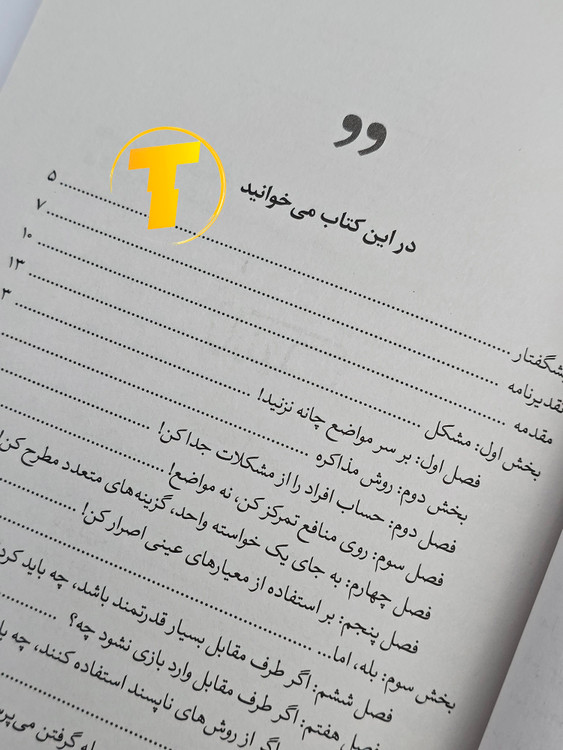 در این کتاب می‌خوانید
شگفتار ........ ۵
تقدیرنامه ........ ۷
مقدمه ........ ۱۰
بخش اول: مشکل ........ ۱۳
فصل اول: بر سر مواضع چانه نزنید! ........ ۳
بخش دوم: روش مذاکره ........
فصل دوم: حساب افراد را از مشکلات جدا کن! ........
فصل سوم: روی منافع تمرکز کن، نه مواضع! ........
فصل چهارم: به جای یک خواسته واحد، گزینه‌های متعدد مطرح کن!
فصل پنجم: بر استفاده از معیارهای عینی اصرار کن! ........
بخش سوم: بله، اما... ........
فصل ششم: اگر طرف مقابل بسیار قدرتمند باشد، چه باید کرد
فصل هفتم: اگر طرف مقابل وارد بازی نشود چه؟ ........
اگر از روش‌های ناپسند استفاده کنند، چه
گرفتن
T